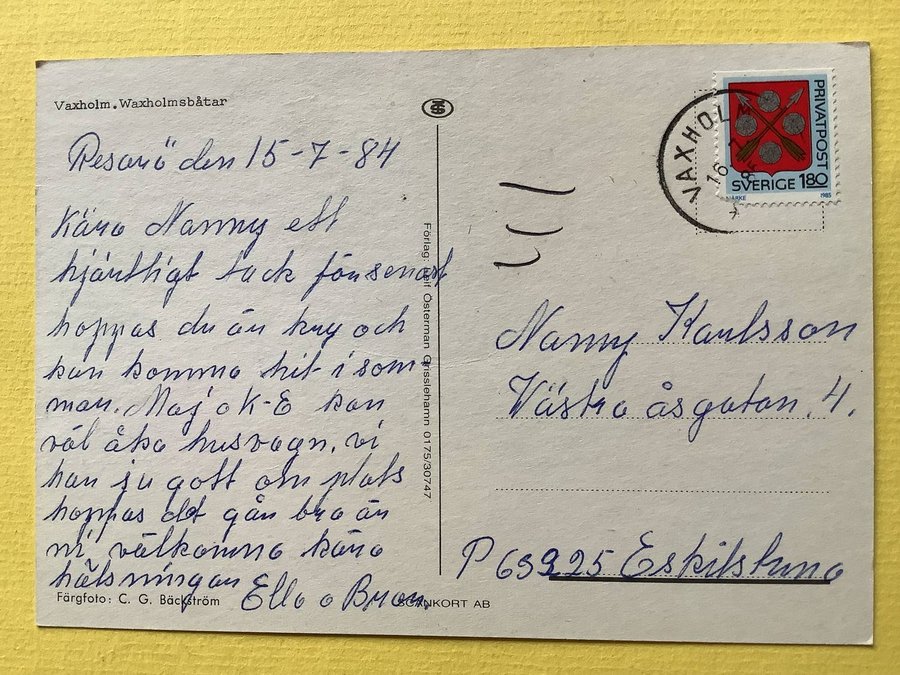 Vaxholm. Waxholmsbåtar
Resarö den 15-7-84
Kära Nanny ett
hjärtligt tack för senast
hoppas du är kry och
kan komma hit i som-
mar. Maj o K-E kan
väl åka husvagn. vi
har ju gott om plats
hoppas det går bra är
ni välkomna kära
hälsningar
Ella o Bror.
Färgfoto: C. G. Bäckström
Förlag: Leif Österman Grisslehamn 0175/30747
SCANKORT AB
VAXHOLM
16
PRIVATPOST
SVERIGE 180
1985
Nanny Karlsson
Västra åsgatan. 4.
P 63225 Eskilstuna